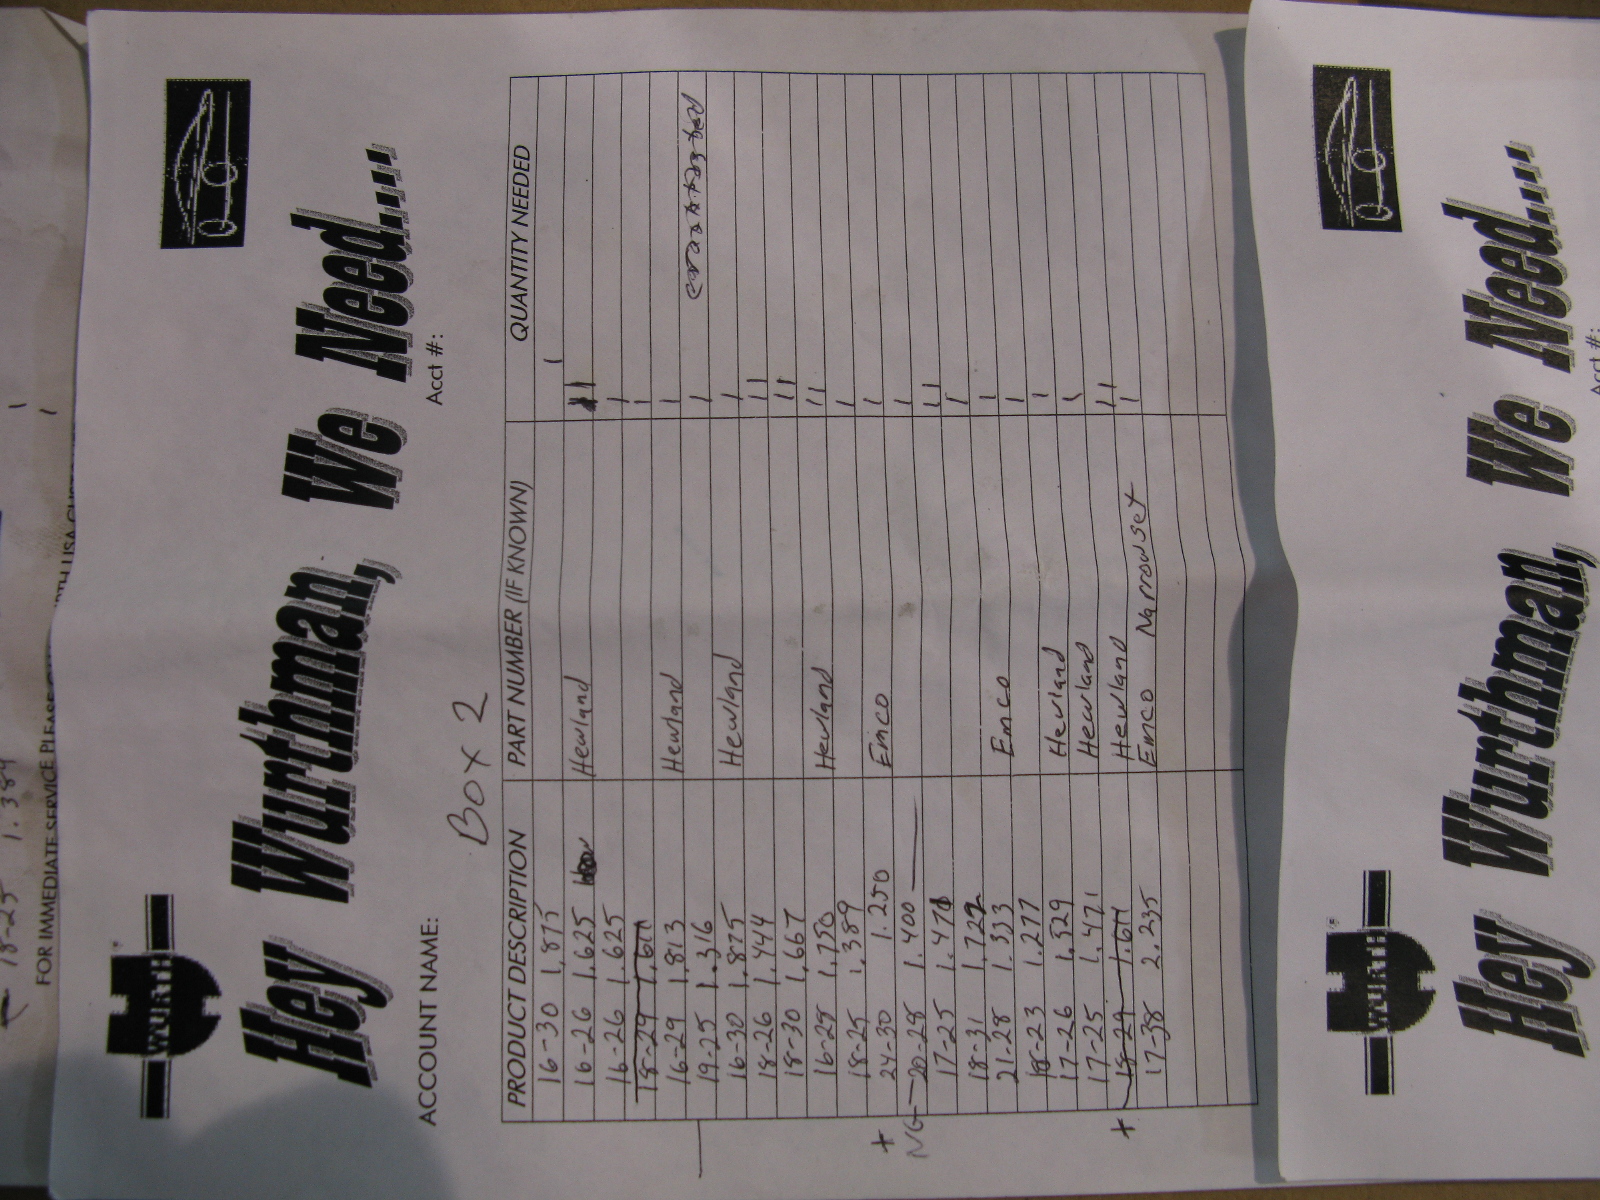 ← 18-25 1.389 1
1
FOR IMMEDIATE SERVICE PLEASE
WURTH
Hey Wurthman, We Need....
ACCOUNT NAME: Acct #:
Box 2
PRODUCT DESCRIPTION PART NUMBER (IF KNOWN) QUANTITY NEEDED
16-30 1.875 1
16-26 1.625 Hewland 11
16-26 1.625 1
18-29 1.611 1
16-29 1.813 Hewland 1
19-25 1.316 1
16-30 1.875 Hewland 1
18-26 1.444 11
18-30 1.667 11
16-28 1.750 Hewland 11
18-25 1.389 1
+ 24-30 1.250 Emco 1
NG 20-28 1.400 1
17-25 1.471 11
18-31 1.722 1
21-28 1.333 Emco 1
18-23 1.277 1
17-26 1.529 Hewland 1
17-25 1.471 Hewland 1
+ 18-29 1.611 Hewland 11
17-38 2.235 Emco Narrow set 1
WURTH
Hey Wurthman, We Need....
Acct #: